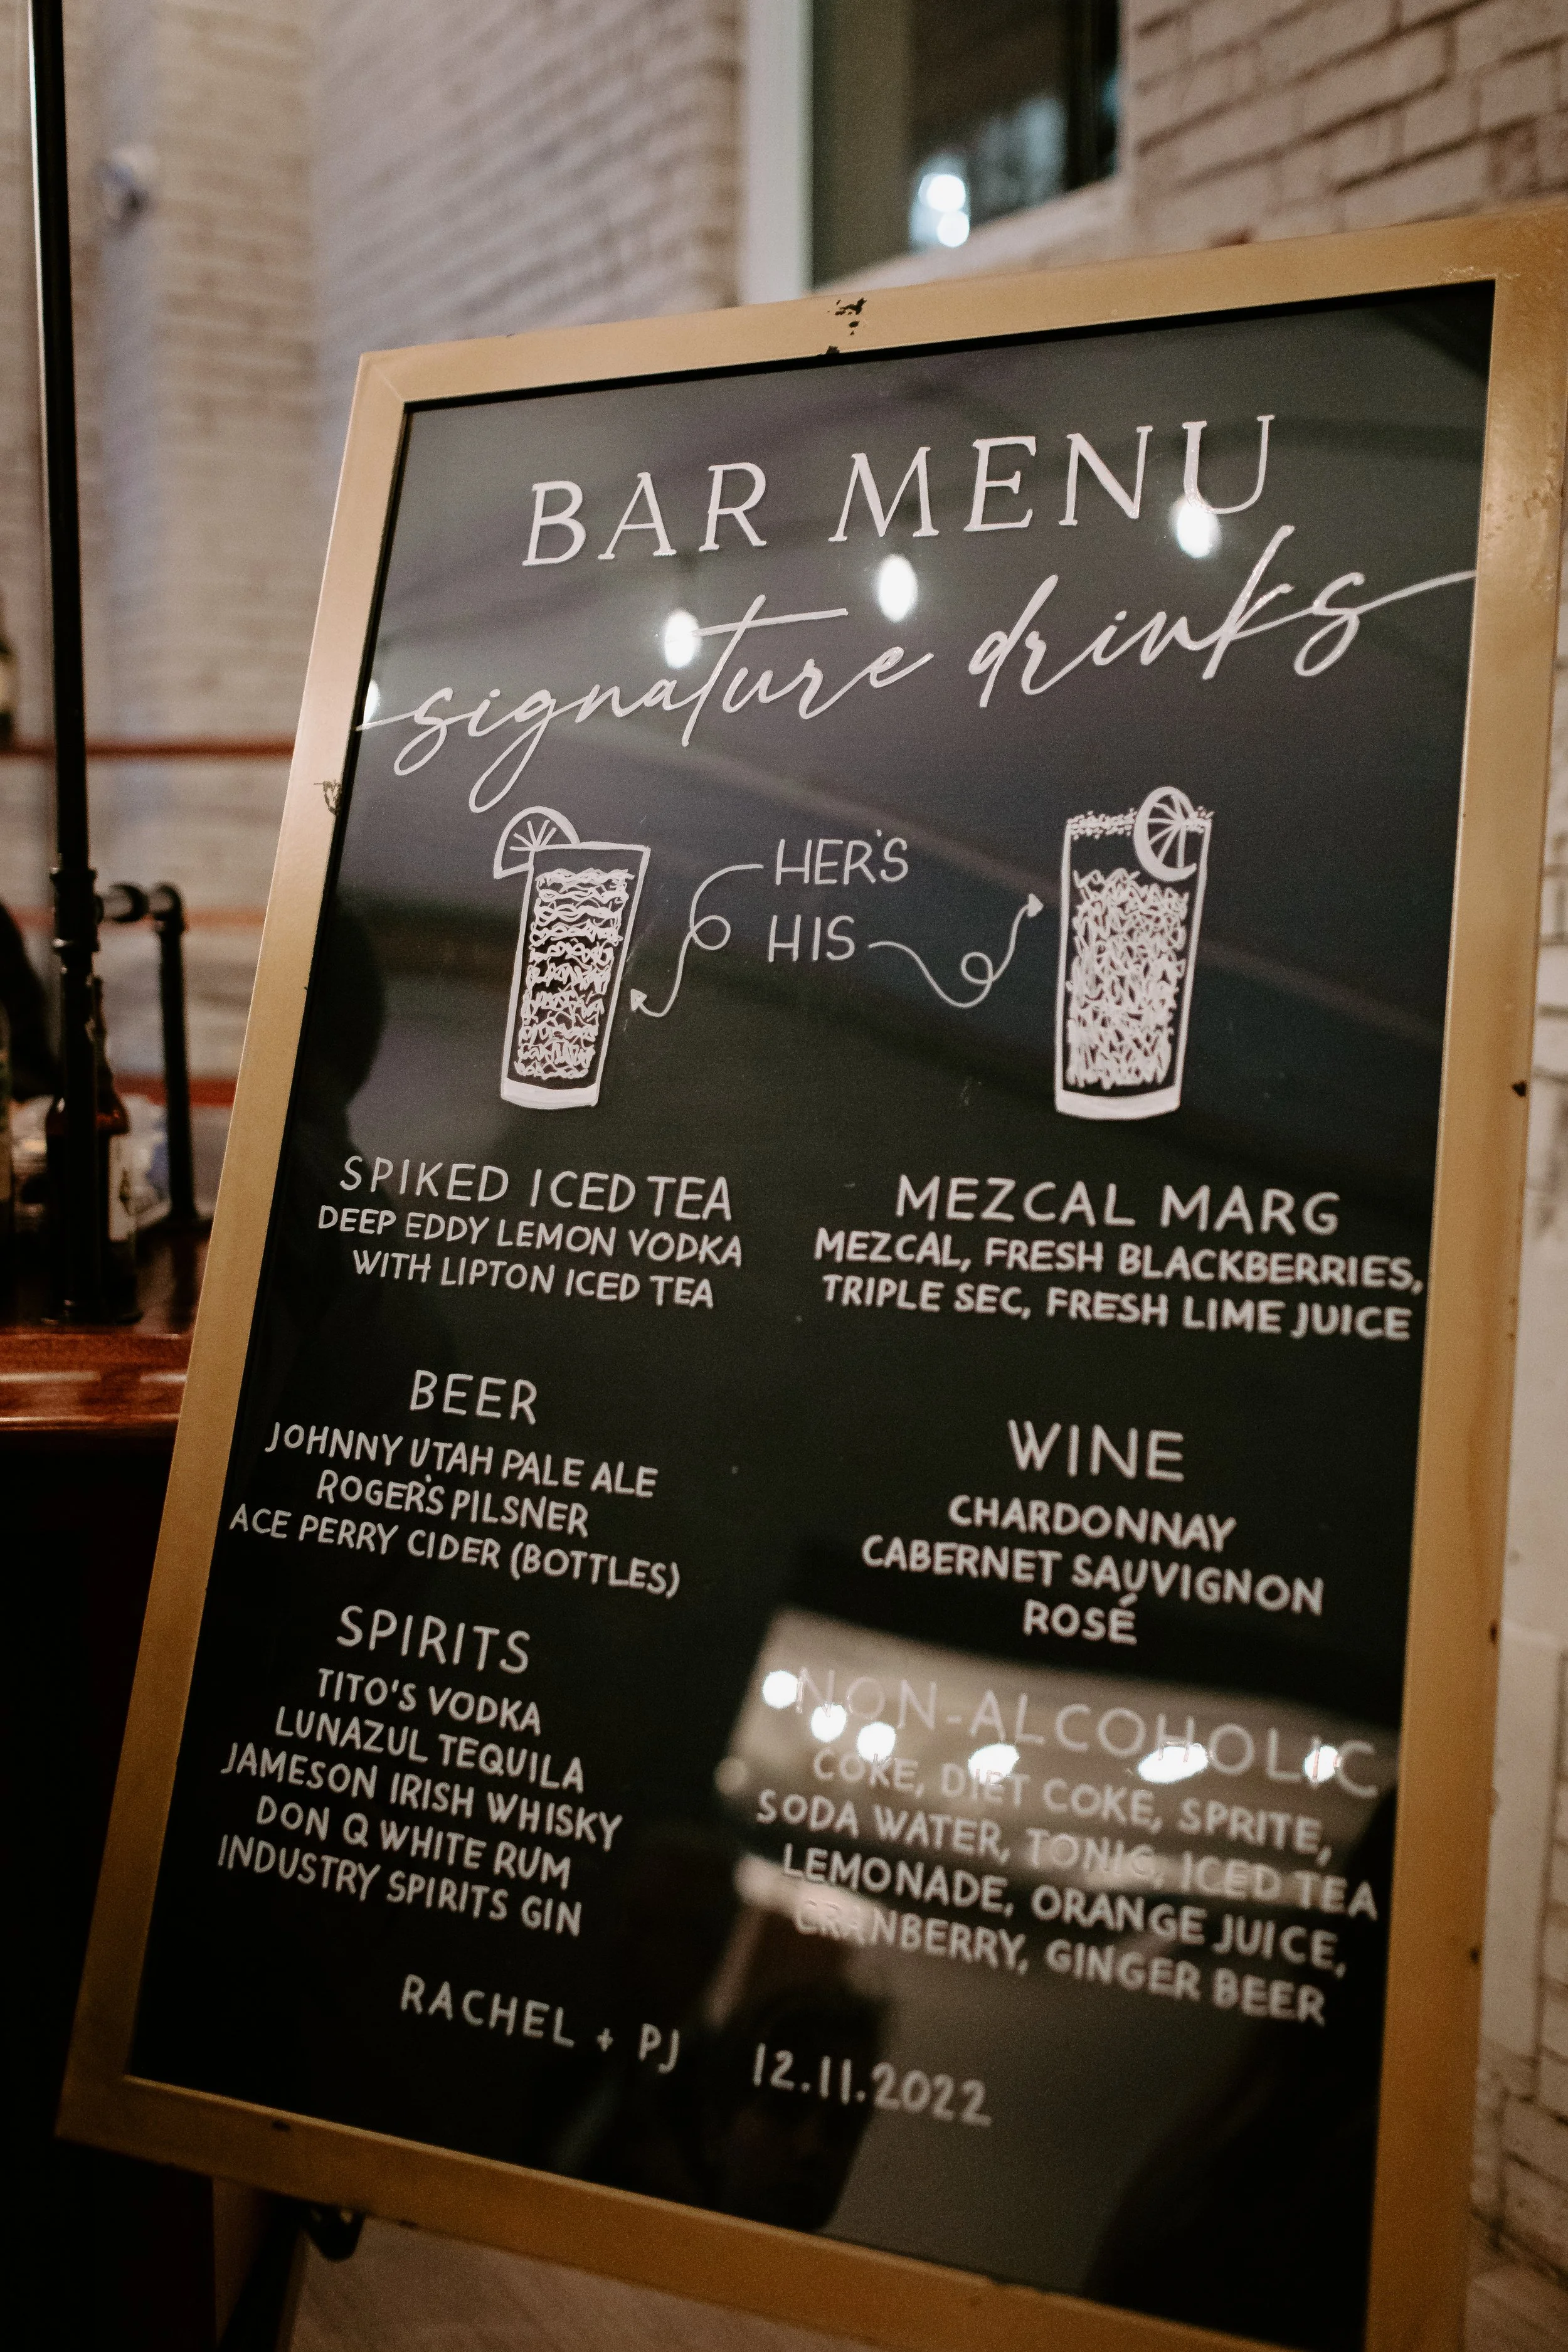 BAR MENU
signature drinks
HER'S
HIS
SPIKED ICED TEA
DEEP EDDY LEMON VODKA
WITH LIPTON ICED TEA
MEZCAL MARG
MEZCAL, FRESH BLACKBERRIES,
TRIPLE SEC, FRESH LIME JUICE
BEER
JOHNNY UTAH PALE ALE
ROGER'S PILSNER
ACE PERRY CIDER (BOTTLES)
WINE
CHARDONNAY
CABERNET SAUVIGNON
ROSÉ
SPIRITS
TITO'S VODKA
LUNAZUL TEQUILA
JAMESON IRISH WHISKY
DON Q WHITE RUM
INDUSTRY SPIRITS GIN
NON-ALCOHOLIC
COKE, DIET COKE, SPRITE,
SODA WATER, TONIC, ICED TEA
LEMONADE, ORANGE JUICE,
CRANBERRY, GINGER BEER
RACHEL + PJ 12.11.2022